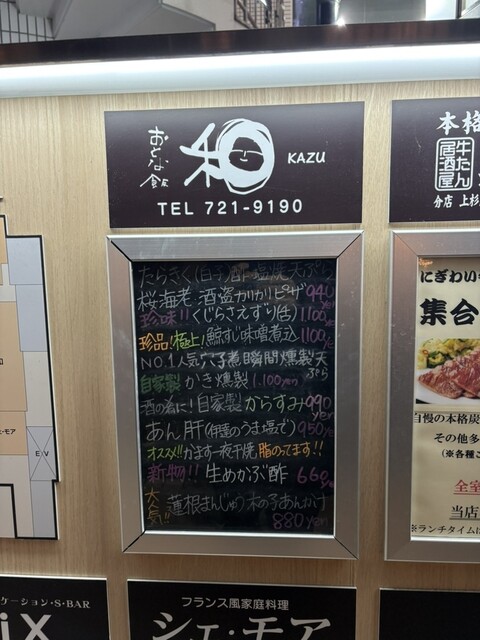 おとな飯
和
KAZU
TEL 721-9190
たらきく(白子)酢・塩焼・天ぷら
桜海老 酒盗カリカリピザ 940
珍味!! くじらさえずり(舌) 1,100yen
珍品!極上!鯨すじ味噌煮込 1,100yen
NO.1人気穴子煮瞬間燻製天ぷら
自家製 かき燻製 1,100yen
酒の肴に!自家製からすみ 990yen
あん肝(伊達のうま塩で) 950yen
オススメ!!かます一夜干焼 脂のってます!!
新物!! 生めかぶ酢 660yen
大人気!! 蓮根まんじゅう木の子あんかけ
880yen
本格
牛たん
居酒屋
分店 上杉
にぎわい
集合
自慢の本格炭
その他多
(※各種
全室
当店
※ランチタイムに
モア
EV
ケーション・S・BAR
iX
フランス風家庭料理
シェ・モア